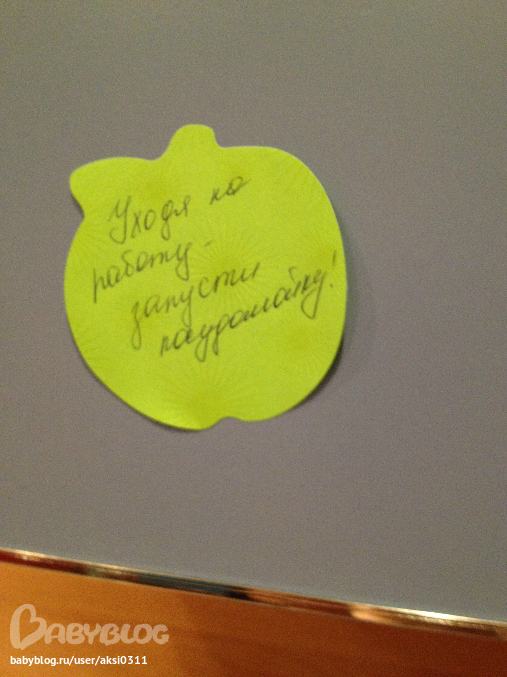 Уходя на
работу -
запусти
посудомойку!
BABYBLOG
babyblog.ru/user/aksi0311